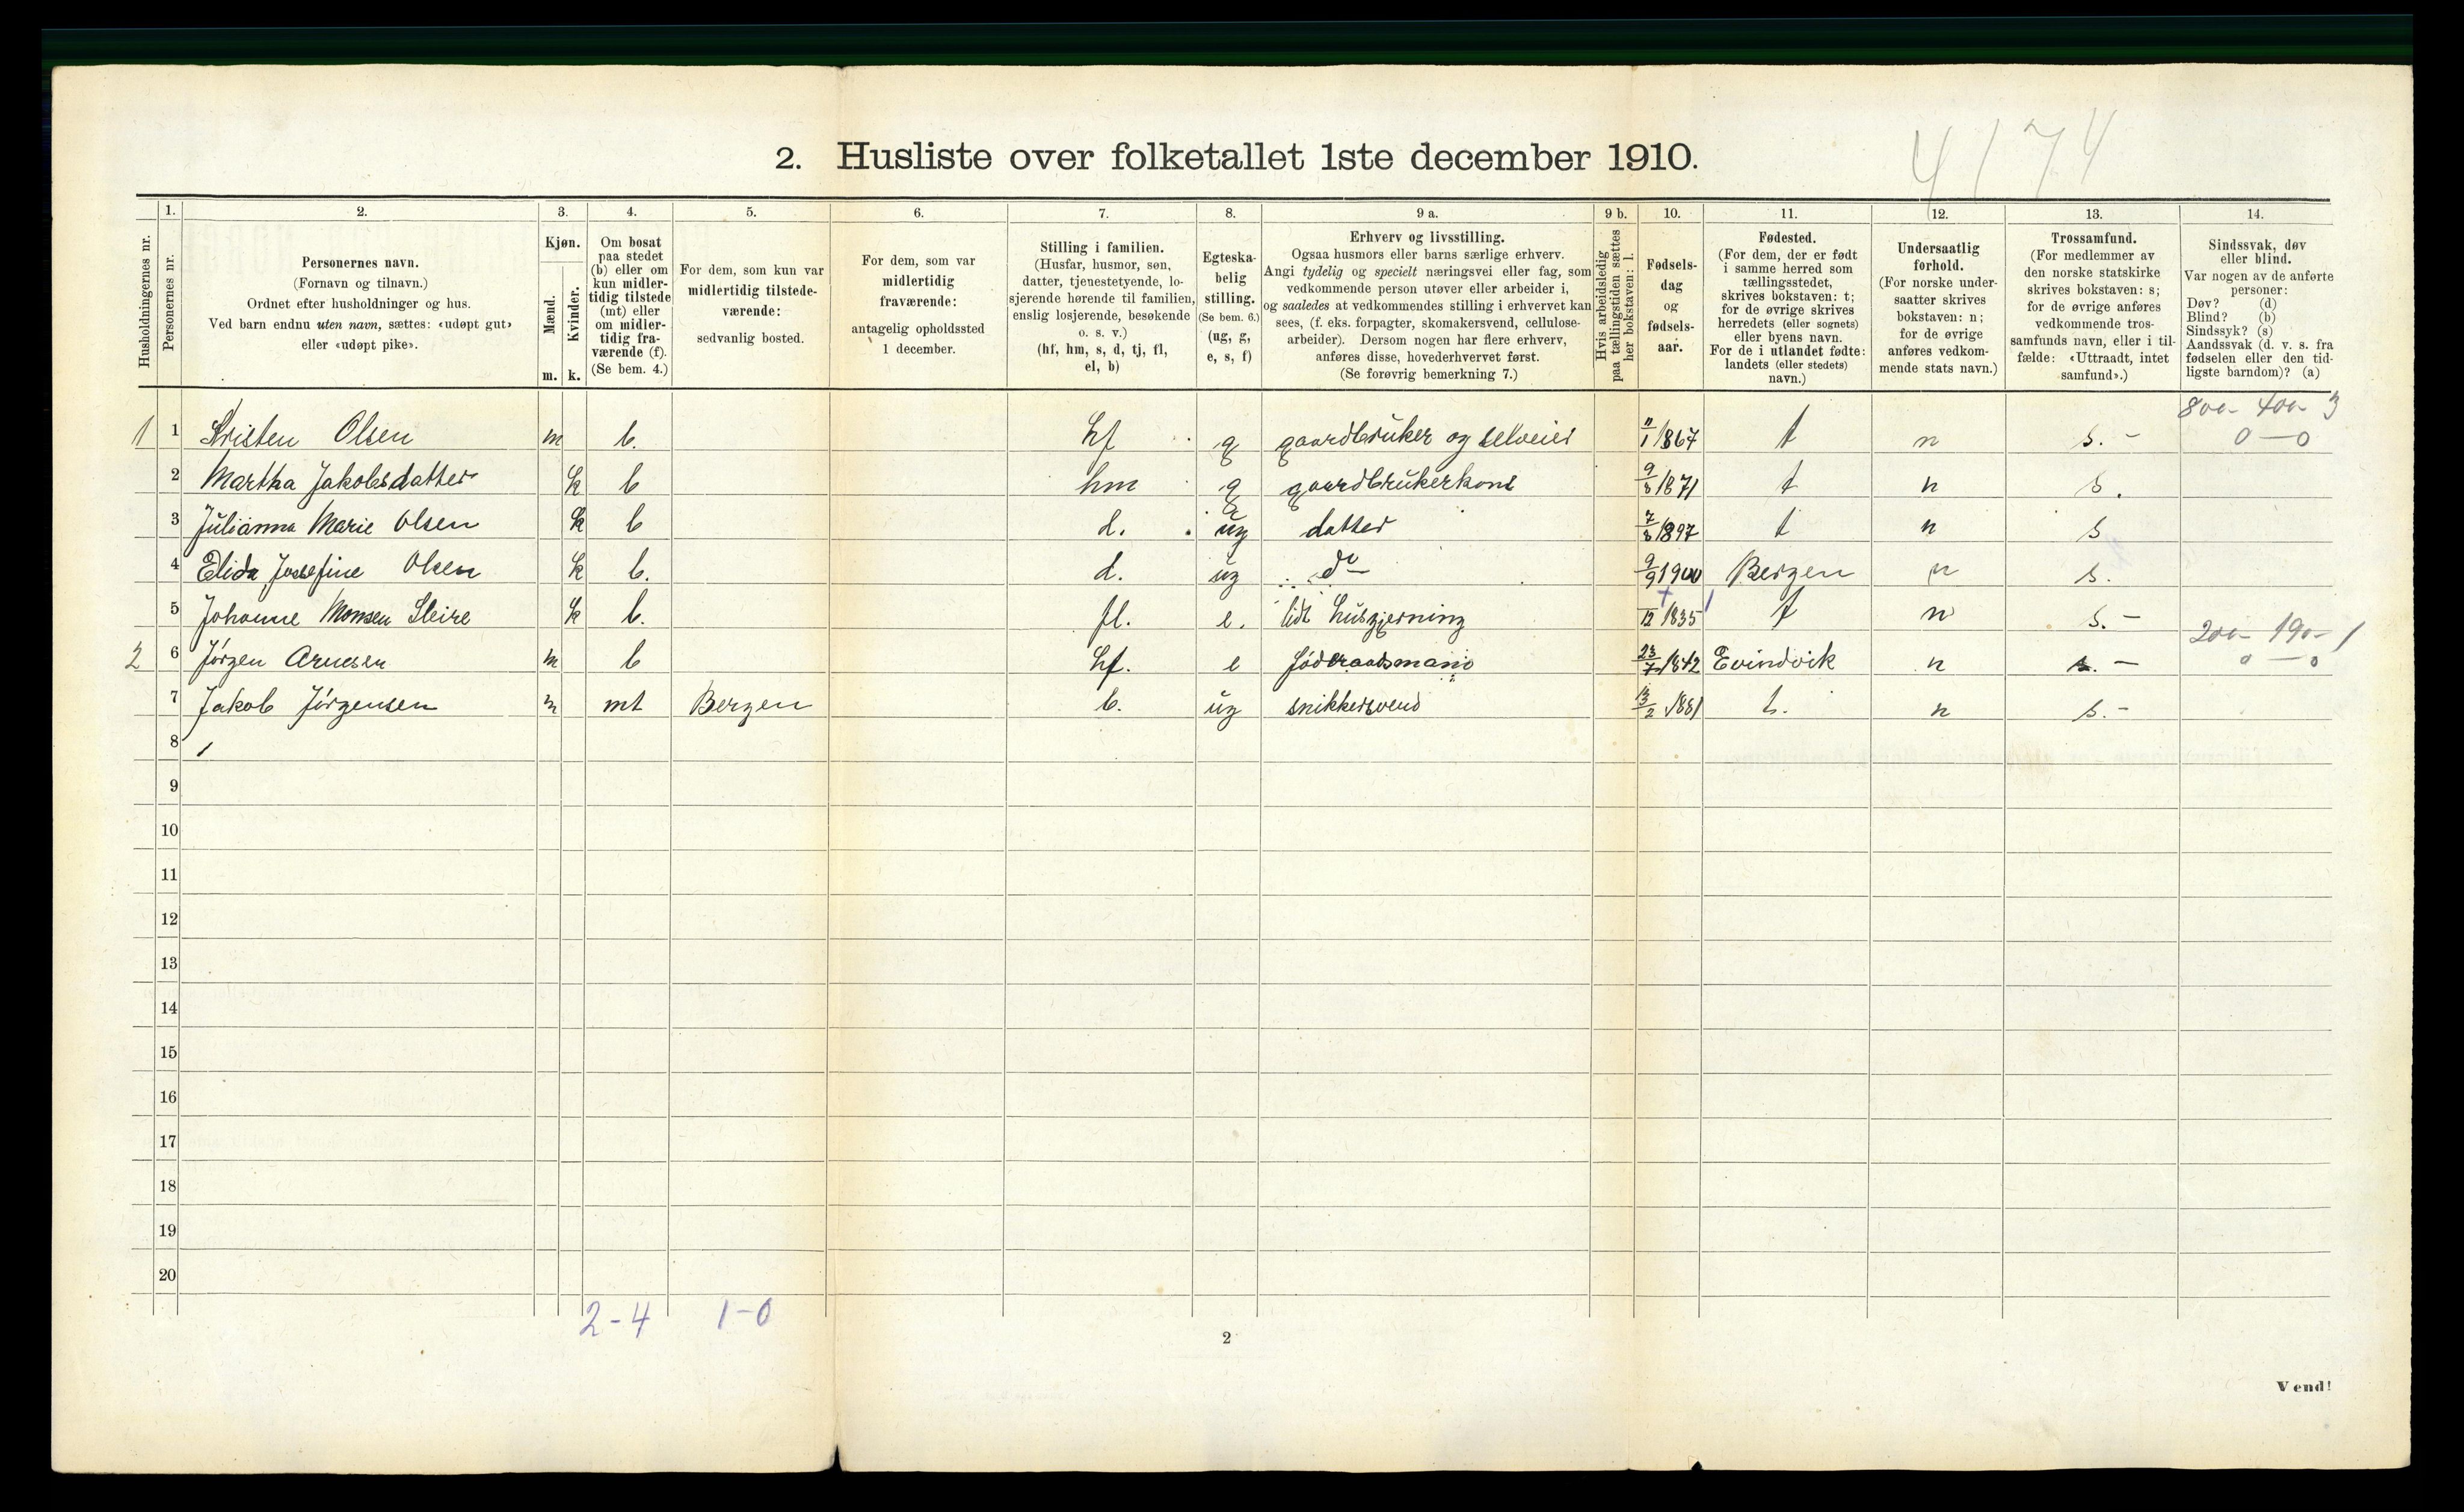 4174
2. Husliste over folketallet 1ste december 1910.
Husholdningernes nr.
1. Personernes nr.
2. Personernes navn. (Fornavn og tilnavn.) Ordnet efter husholdninger og hus. Ved barn endnu uten navn, sættes: «udøpt gut» eller «udøpt pike».
3. Kjøn. Mænd. m. Kvinder. k.
4. Om bosat paa stedet (b) eller om kun midlertidig tilstede (mt) eller om midlertidig fraværende (f). (Se bem. 4.)
5. For dem, som kun var midlertidig tilstedeværende: sedvanlig bosted.
6. For dem, som var midlertidig fraværende: antagelig opholdssted 1 december.
7. Stilling i familien. (Husfar, husmor, søn, datter, tjenestetyende, losjerende hørende til familien, enslig losjerende, besøkende o. s. v.) (hf, hm, s, d, tj, fl, el, b)
8. Egteskabelig stilling. (Se bem. 6.) (ug, g, e, s, f)
9 a. Erhverv og livsstilling. Ogsaa husmors eller barns særlige erhverv. Angi tydelig og specielt næringsvei eller fag, som vedkommende person utøver eller arbeider i, og saaledes at vedkommendes stilling i erhvervet kan sees, (f. eks. forpagter, skomakersvend, cellulosearbeider). Dersom nogen har flere erhverv, anføres disse, hovederhvervet først. (Se forøvrig bemerkning 7.)
9 b. Hvis arbeidsledig paa tællingstiden sættes her bokstaven: l.
10. Fødselsdag og fødselsaar.
11. Fødested. (For dem, der er født i samme herred som tællingsstedet, skrives bokstaven: t; for de øvrige skrives herredets (eller sognets) eller byens navn. For de i utlandet fødte: landets (eller stedets) navn.)
12. Undersaatlig forhold. (For norske undersaatter skrives bokstaven: n; for de øvrige anføres vedkommende stats navn.)
13. Trossamfund. (For medlemmer av den norske statskirke skrives bokstaven: s; for de øvrige anføres vedkommende trossamfunds navn, eller i tilfælde: «Uttraadt, intet samfund».)
14. Sindssvak, døv eller blind. Var nogen av de anførte personer: Døv? (d) Blind? (b) Sindssyk? (s) Aandssvak (d. v. s. fra fødselen eller den tidligste barndom)? (a)
800- 400- 3
1 1 Kristen Olsen m b. hf g gaardbruker og selveier 11/1 1867 t n s. - 0-0
2 Martha Jakobsdatter k b hm g gaardbrukerkone 9/8 1871 t n s.
3 Julianna Marie Olsen k b d. ug datter 7/8 1897 t n s
4 Elida Josefine Olsen k b. d. ug do 9/9 1900 Bergen n s.
5 Johanne Monsen Sleire k b. fl. e. lidt husgjerning /12 1835 t n s. -
200- 190- 1
2 6 Jørgen Arnesen m b hf. e føderaadsmand 23/7 1842 Evindvik n s. - 0-0
7 Jakob Jørgensen m mt Bergen b. ug snikkersvend 13/2 1881 t. n s. -
8
9
10
11
12
13
14
15
16
17
18
19
20
2-4 1-0
2
Vend!